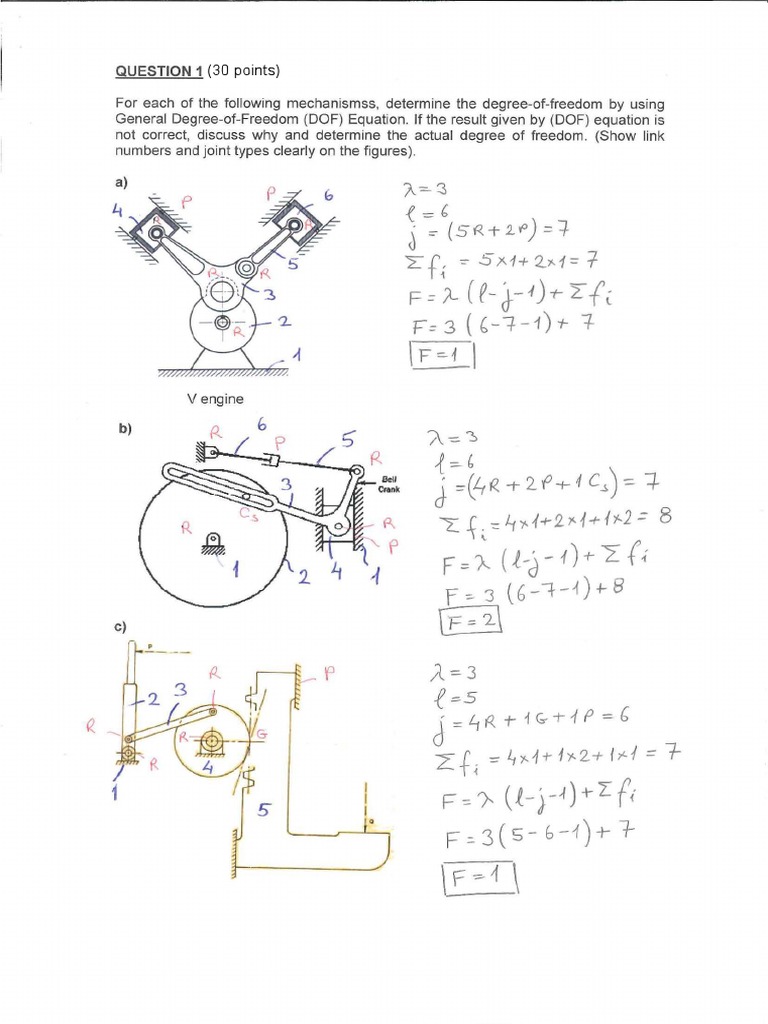 QUESTION 1 (30 points)
For each of the following mechanismss, determine the degree-of-freedom by using
General Degree-of-Freedom (DOF) Equation. If the result given by (DOF) equation is
not correct, discuss why and determine the actual degree of freedom. (Show link
numbers and joint types clearly on the figures).
a)
4
P
P
6
R
R
5
R
R
3
R
2
1
V engine
λ = 3
l = 6
j = (5R + 2P) = 7
Σ fi = 5×1 + 2×1 = 7
F = λ (l - j - 1) + Σ fi
F = 3 (6 - 7 - 1) + 7
F = 1
b)
R
6
P
5
R
Bell
Crank
3
Cs
R
R
P
1
2
4
1
λ = 3
l = 6
j = (4R + 2P + 1Cs) = 7
Σ fi = 4×1 + 2×1 + 1×2 = 8
F = λ (l - j - 1) + Σ fi
F = 3 (6 - 7 - 1) + 8
F = 2
c)
P
R
P
2
3
R
R
G
R
4
1
5
Q
λ = 3
l = 5
j = 4R + 1G + 1P = 6
Σ fi = 4×1 + 1×2 + 1×1 = 7
F = λ (l - j - 1) + Σ fi
F = 3 (5 - 6 - 1) + 7
F = 1